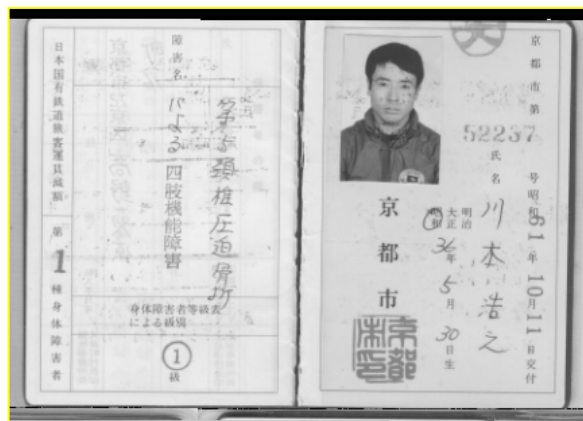 京都市第 52237 号 昭和61年10月11日交付
氏名 川本 浩之
明治
大正
昭和
36年5月30日生
京都市
京都市印
障害名
第5頸椎圧迫骨折
による四肢機能障害
身体障害者等級表
による級別
1級
日本国有鉄道旅客運賃減額
第1種身体障害者